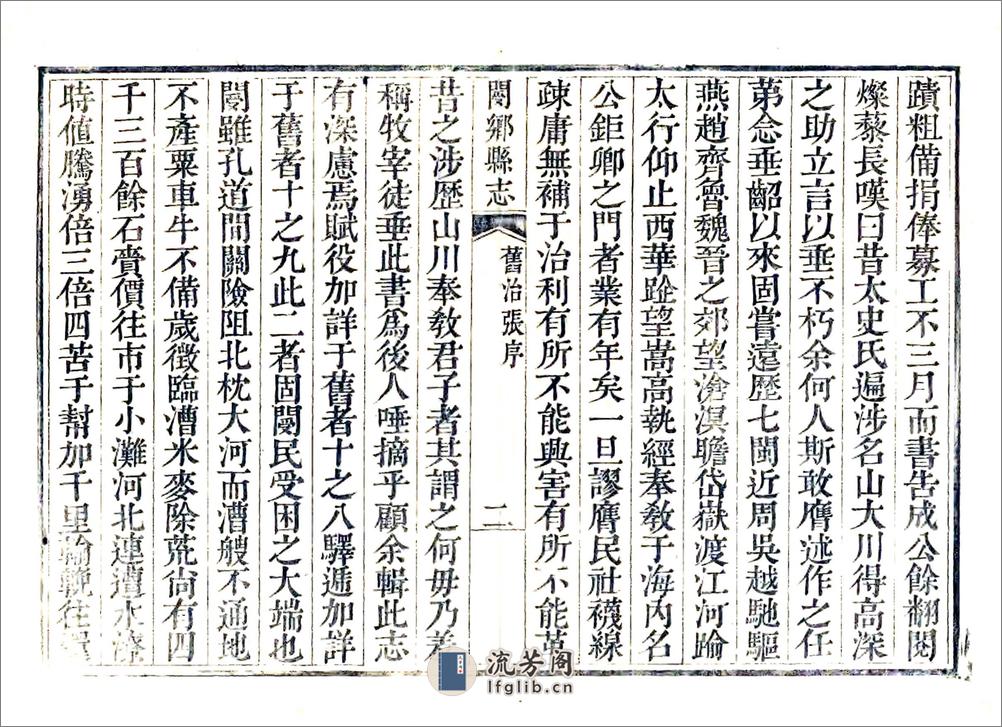 蹟粗備捐俸募工不三月而書告成公餘翻閱
燦藜長嘆曰昔太史氏遍涉名山大川得高深
之助立言以垂不朽余何人斯敢膺述作之任
第念垂齠以來固嘗遠歷七閩近周吳越馳驅
燕趙齊魯魏晉之郊望滄溟瞻岱嶽渡江河踰
太行仰止西華跂望嵩高執經奉教于海內名
公鉅卿之門者業有年矣一旦謬膺民社襪線
疎庸無補于治利有所不能興害有所不能革
閿鄉縣志
舊治張序
二
昔之涉歷山川奉教君子者其謂之何毋乃羞
稱牧宰徒垂此書爲後人唾摘乎顧余輯此志
有深慮焉賦役加詳于舊者十之八驛遞加詳
于舊者十之九此二者固閿民受困之大端也
閿雖孔道間關險阻北枕大河而漕艘不通地
不產粟車牛不備歲徵臨漕米麥除荒尚有四
千三百餘石賫價往市于小灘河北連遭水澇
時值騰湧倍三倍四苦于幫加千里輸輓往
流芳阁
lfglib.cn